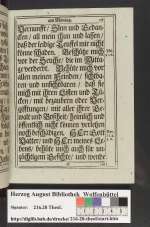 am Montag.
Vernunfft / Sinn und Gedan-
cken / all mein thun und lassen /
daß der leidige Teuffel mir nicht
könne schaden. Beschütze mich
vor der Seuche / die im Mitta-
ge verderbt. Behüte mich vor
allen meinen Feinden / sichtba-
ren und unsichtbaren / daß sie
mich mit ihren Listen und Tü-
cken / mit bezaubern oder Ver-
gifftungen / mit aller ihrer Ge-
walt und Boßheit / heimlich und
öffentlich nicht können verletzen
noch beschädigen. HErr Gott
Vatter / und HErr meines Le-
bens / behüte mich auch für un-
züchtigem Gesichte / und wende
Herzog August Bibliothek Wolfenbüttel
Signatur: 216.28 Theol.
http://diglib.hab.de/drucke/216-28-theol/start.htm